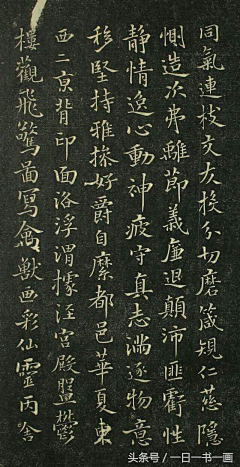 同氣連枝交友投分切磨箴規仁慈隱
惻造次弗離節義廉退顛沛匪虧性
靜情逸心動神疲守真志滿逐物意
移堅持雅操好爵自縻都邑華夏東
西二京背邙面洛浮渭據涇宮殿盤鬱
樓觀飛驚圖寫禽獸畫彩仙靈丙舍
头条号/一日一书一画